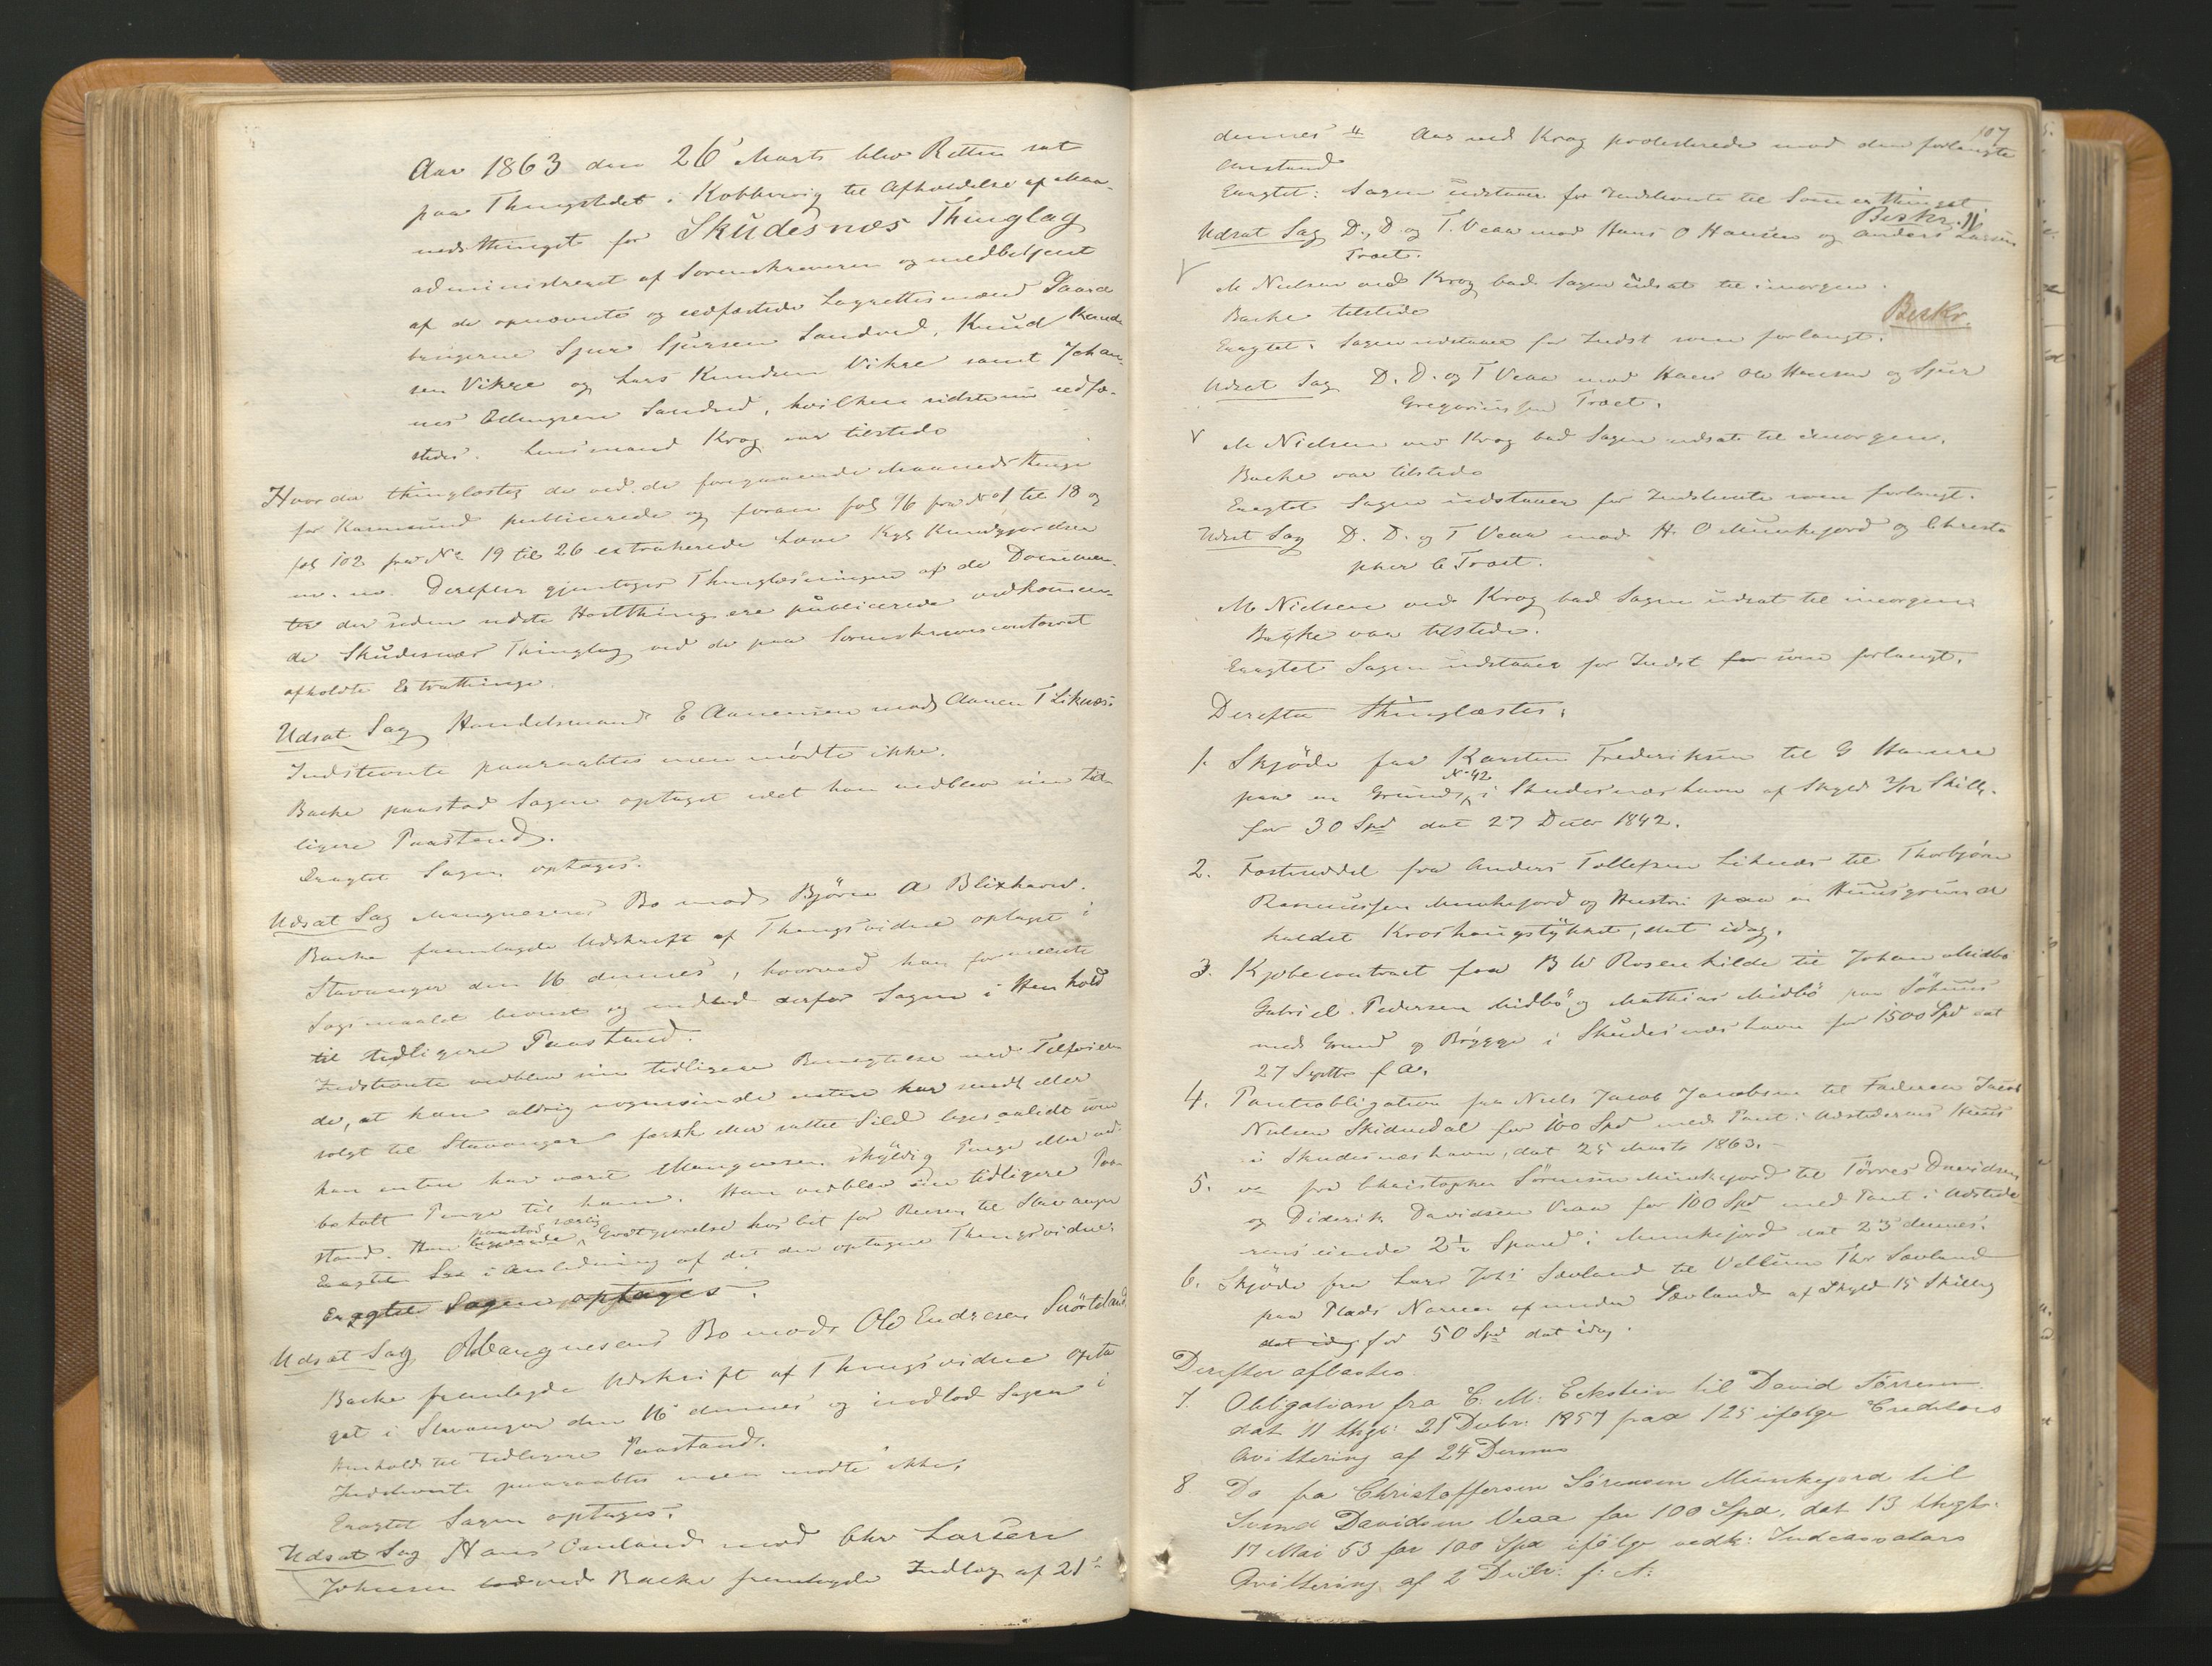 Aar 1863 den 26' Marts blev Retten sat
paa Thingstedet i Kobbervig til Afholdelse af Maa-
nedsthinget for Skudesnæs Thinglag
administreret af Sorenskriveren og medbetjent
af de opnævnte og edfæstede Laugrettesmænd Gaard
brugerne Sjur Sjursen Sandved, Knud Knud-
sen Vikre og Lars Knudsen Vikre samt Johan-
nes Ellingsen Sandved, hvilken sidste nu edfæ-
stedes. Lensmand Krog var tilstede
Hvorda thinglæstes de ved de foregaaende Maanedsthinge
for Karmsund publicerede og foran fol 96 fra No 1 til 18 og
fol 102 fra No 19 til 26 extraherede Love Kgl Kundgjørelser
m. m. Derefter gjentoges Thinglæsningen af de Documen-
ter der siden sidste Høstthing ere publicerede vedkommen-
de Skudesnæs Thinglag ved de paa Sorenskrivercontoret
afholdte Extrathinge.
Udsat Sag Handelsmand E Aanensen mod Aanen T Liknæs.
Indstevnte paaraabtes men mødte ikke.
Backe paastod Sagen optaget idet han vedblev sin tid-
ligere Paastand.
Eragtet Sagen optages.
Udsat Sag Mangnesens Bo mod Bjørn A Blixhavn.
Backe fremlagde Udskrift af Thingsvidne optaget i
Stavanger den 16 dennes, hvorved han formeente
Sagsmaalet beviist og indlod derfor Sagen i Henhold
til tidligere Paastand.
Indstevnte vedblev sin tidligere Benægtelse med Tilføien-
de, at han aldrig nogensinde enten har sendt eller
solgt til Stavanger fersk eller saltet Sild ligesaalidt som
han enten har været Mangnesen skyldig Penge eller ud-
betalt Penge til ham. Han vedblev sin tidligere Paa-
stand. Han paastod særlig Godtgjørelse hos lit for Reisen til Stavanger
i Anledning af det der optagne Thingsvidne.
Eragtet Sagen optages.
Udsat Sag Mangnesens Bo mod Ole Endresen Snørteland
Backe fremlagde Udskrift af Thingsvidne opta-
get i Stavanger den 16 dennes og indlod Sagen i
Henhold til tidligere Paastand.
Indstevnte paaraabtes men mødte ikke.
Eragtet Sagen optages.
Udsat Sag Hans Omland mod Chr Larsen
Johnsen ved Backe fremlagde Indlæg af 21de
107
dennes Aas ved Krog protesterede mod den forlangte
Anstand
Eragtet: Sagen udstaaer for Indstevnte til Sommerthinget
Beskr.
Udsat Sag D., D og T. Veaa mod Hans O Hansen og Anders Larsen
Træt.
M Nielsen ved Krog bad Sagen udsat til imorgen.
Backe tilstede
Beskr.
Eragtet: Sagen udstaaer for Indst som forlangt.
Udsat Sag D. D. og T Veaa mod Hans Ole Hansen og Sjur
Gregoriussen Træet.
M Nielsen ved Krog bad Sagen udsat til imorgen.
Backe var tilstede
Eragtet Sagen udstaaer for Indstevnte som forlangt.
Udsat Sag D. D. og T Veaa mod H. O Munkejord og Christo
pher C Træet.
M Nielsen ved Krog bad Sagen udsat til imorgen
Backe var tilstede.
Eragtet Sagen udstaaer for Indst for som forlangt.
Derefter thinglæstes:
1. Skjöde fra Karsten Frederiksen til G Hansen
paa en Grund No 42 i Skudesnæshavn af Skyld 2/12 Skill.
for 30 Spd dat 27 Decbr 1842.
2. Fæsteseddel fra Anders Tollefsen Liknæs til Thorbjørn
Rasmussen Munkejord og Hustru paa en Huusgrund
kaldet Kroshaugstykket, dat idag.
3. Kjøbecontract fra B W Rosenkilde til Johan Midbö
Gabriel Pedersen Midbö og Mathias Midbö paa Söhuus
med Grund og Brygge i Skudesnæshavn for 1500 Spd dat
27 Septbr f A.
4. Pantobligation fra Niels Jacob Jacobsen til Faderen Jacob
Nielsen Skidnedal for 100 Spd med Pant i Udstederens Huus
i Skudesnæshavn, dat 25 Marts 1863.
5. do fra Christopher Sörensen Munkejord til Törres Davidsen
og Diderik Davidsen Veaa for 100 Spd med Pant i Udstede-
rens eiende 2½ Spand i Munkejord dat 23 dennes.
6. Skjöde fra Lars Johs Sævland til Vellum Thor Sævland
paa Plads Narven af under Sævland af Skyld 15 Skilling
dat idag for 50 Spd dat idag.
Derefter aflæstes
7. Obligation fra C. M. Eckstein til David Sörensen
dat 11 thgl: 21 Decbr: 1857 paa 125 ifølge Creditors
Qvittering af 24 Dennes
8 Do fra Christoffersen Sörensen Munkejord til
Svend Davidsen Veaa for 100 Spd, dat 13 thgl:
17 Mai 53 for 100 Spd ifölge vedk: Indcassators
Qvittering af 2 Decbr: f: A: